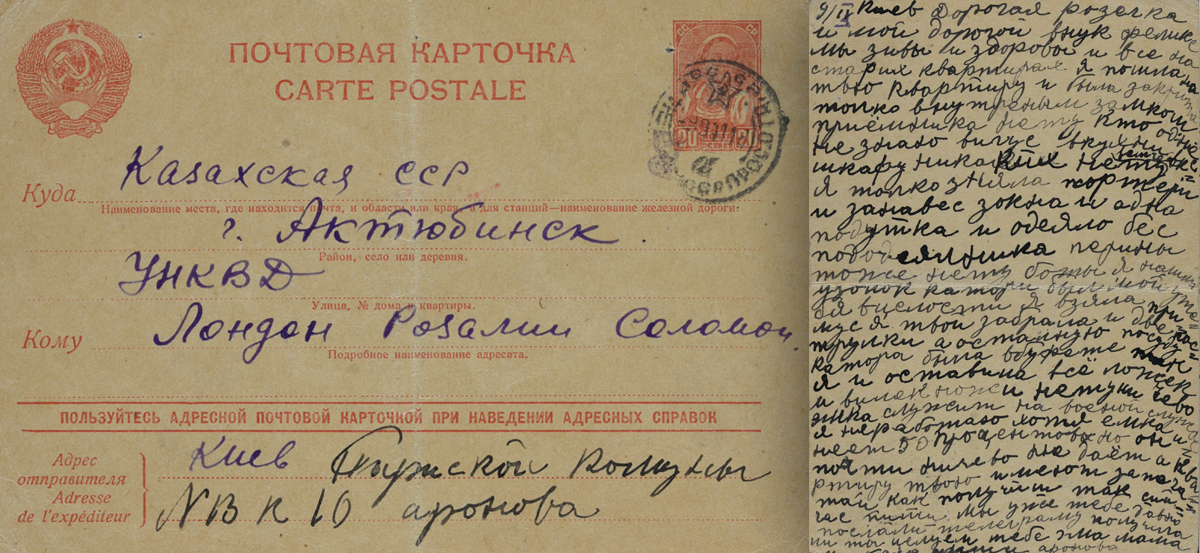 ПОЧТОВАЯ КАРТОЧКА
CARTE POSTALE
Куда
Казахская ССР
Наименование места, где находится почта, и области или края, а для станций—наименование железной дороги.
г. Актюбинск.
Район, село или деревня.
УНКВД
Улица, № дома и квартиры.
Кому
Лондон Розалии Соломон.
Подробное наименование адресата.
ПОЛЬЗУЙТЕСЬ АДРЕСНОЙ ПОЧТОВОЙ КАРТОЧКОЙ ПРИ НАВЕДЕНИИ АДРЕСНЫХ СПРАВОК
Адрес
отправителя
Adresse
de l'expéditeur
Киев Комуны
10 аронова
9/II Киев Дорогая розечка
и мой дорогой внук фелик
мы живы и здоровы и все на
старих квартирах я пошла на
твою квартиру и была
только внутреным замком
приёмника нету кто
не знаю
шкафу никаких нету
я только зняла портери
и занавес зокна и адна
подутка и одеяло бес
перины
тоже нету я
узолок катори был мой
я взяла при
муся твои забрала и две кас
трулки а остальную посуду
катора была
я и оставила всё ложек
и вилек ножи нету ничево
служит на военой
я неработаю хотя
неет 50 процентов но он
почти ничево не даёт а ква
ртиру твою имеют
тай как получиш так сий
час пиши мы уже тебе давно
послали телеграму получила
ли ты целуем тебе мама
аронова